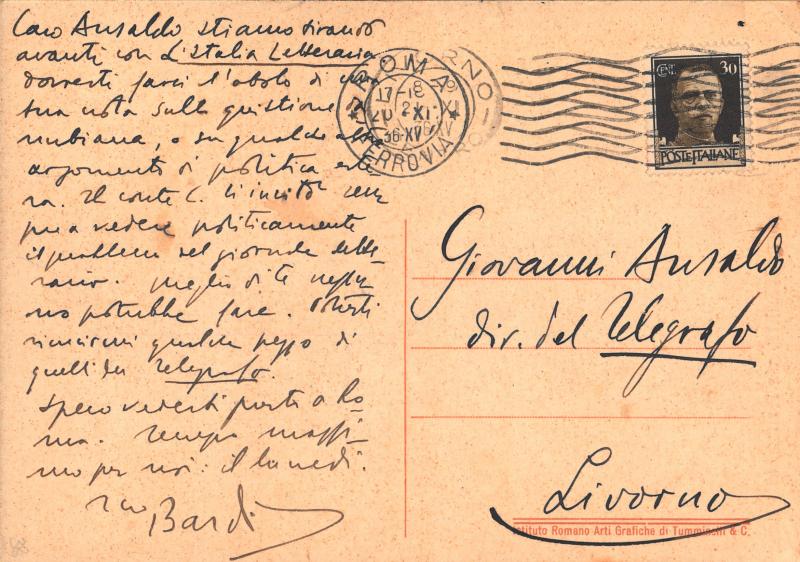 Caro Ansaldo stiamo tirando
avanti con L'Italia Letteraria
dovresti farci l'obolo di una
tua nota sulla questione
nubiana, o su qualche altro
argomento di politica este-
ra. Il conte C. ti incitò sem
pre a vedere politicamente
il problema nel giornale lette-
rario. Meglio di te nessu
no potrebbe fare. Potresti
qualche pezzo di
quelli del Telegrafo.
Spero vederti presto a Ro-
ma. Tempo massi-
mo per noi: il lunedì.
tuo Bardi
ROMA
17-18
20 XI
36-XV
FERROVIA
CENT. 30
POSTE ITALIANE
Giovanni Ansaldo
dir. del Telegrafo
Livorno
Istituto Romano Arti Grafiche di Tumminelli & C.